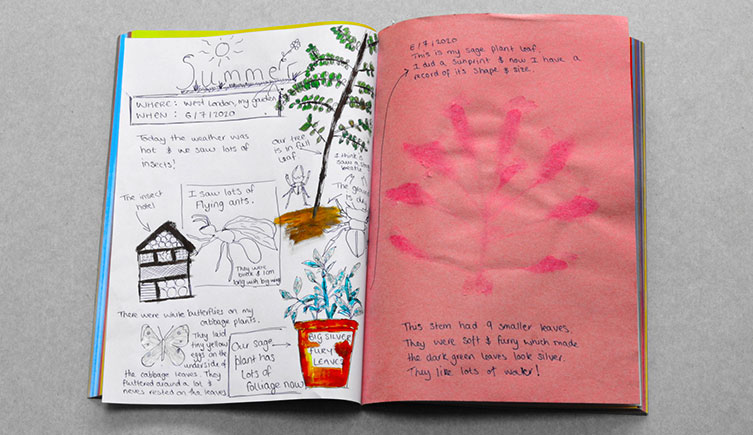 Summer
WHERE: West London, my garden
WHEN: 6/7/2020
Today the weather was
hot & we saw lots of
insects!
Our tree
is in full
leaf
I think I
saw a stag
beetle
The ground
is dry
The insect
hotel
I saw lots of
Flying ants.
They were
black & 1cm
long with big wings
There were white butterflies on my
cabbage plants.
They laid
tiny yellow
eggs on the
underside of
the cabbage leaves. They
fluttered around a lot &
never rested on the leaves
Our sage
plant has
lots of
folliage now
BIG SILVER
FURY
LEAVES
6/7/2020
This is my sage plant leaf.
I did a sunprint & now I have a
record of its shape & size.
This stem had 9 smaller leaves.
They were soft & furry which made
the dark green leaves look silver.
They like lots of water!